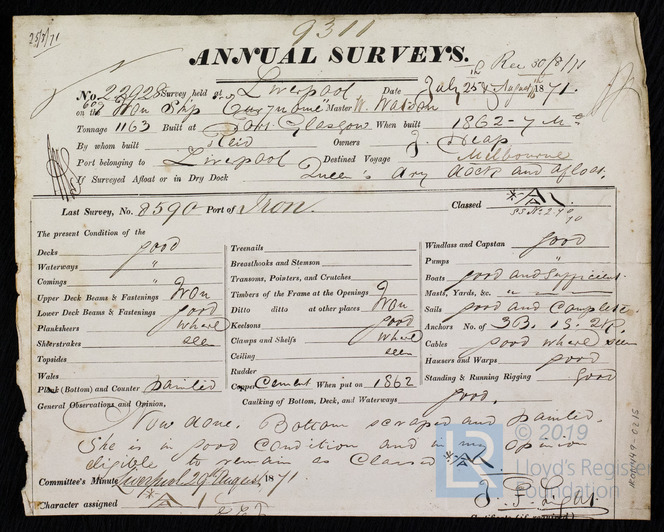 9311
25/7/71
ANNUAL SURVEYS.
Rec 30/8/71
No. 22928 Survey held at Liverpool Date July 25th & August 1871.
on the Iron Ship "Eurynome" Master W. Watson
Tonnage 1163 Built at Port Glasgow When built 1862 - 7 Mo
By whom built Reid Owners J. Heap
Port belonging to Liverpool Destined Voyage Melbourne
If Surveyed Afloat or in Dry Dock Queen's Dry dock and afloat.
Last Survey, No. 8590 Port of Iron. Classed A
SS No 2
The present Condition of the
Decks good
Waterways "
Comings "
Upper Deck Beams & Fastenings Iron
Lower Deck Beams & Fastenings good
Planksheers where
Sheerstrakes seen
Topsides
Wales
Plank (Bottom) and Counter painted
Treenails
Breasthooks and Stemson
Transoms, Pointers, and Crutches
Timbers of the Frame at the Openings
Ditto ditto at other places Iron
Keelsons good
Clamps and Shelfs where
Ceiling seen
Rudder
Copper Cement When put on 1862
Windlass and Capstan good
Pumps "
Boats good and sufficient.
Masts, Yards, &c. " "
Sails good and complete
Anchors No. of 3B. 1S. 2K
Cables good where seen
Hausers and Warps good
Standing & Running Rigging good
Caulking of Bottom, Deck, and Waterways good.
General Observations and Opinion,
Now done. Bottom scraped and painted.
She is in good condition and in my opinion
eligible to remain as Classed A
Committee's Minute Liverpool 29th August 1871
Character assigned A
© 2019
LR
Lloyd's Register
Foundation